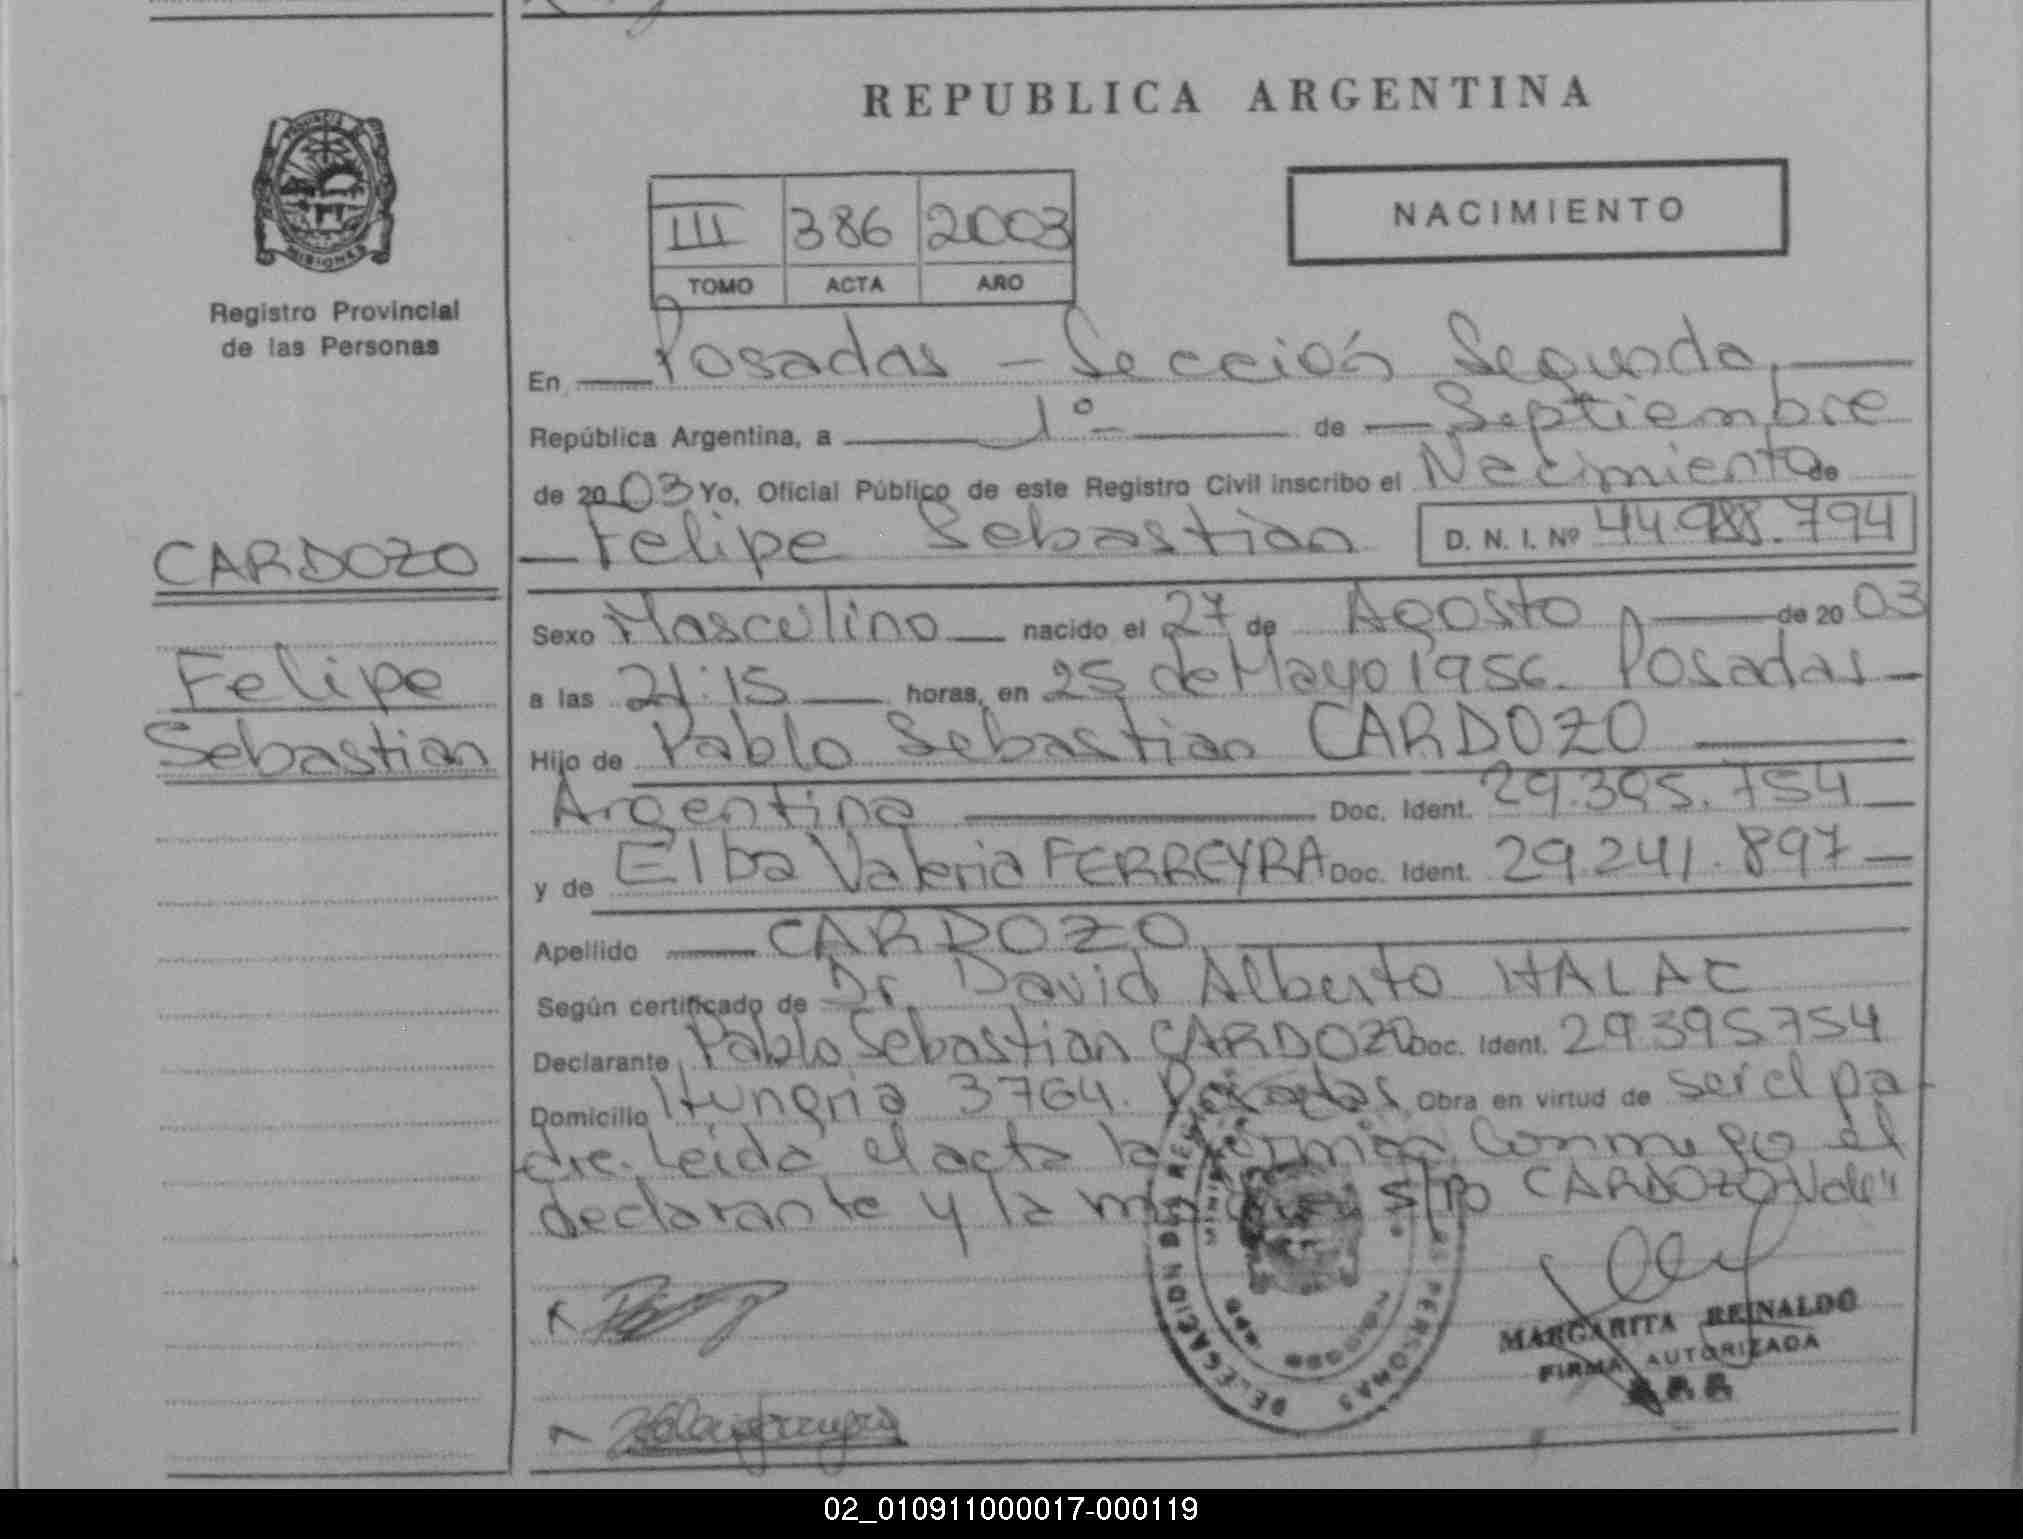 REPUBLICA ARGENTINA
PROVINCIA DE
MISIONES
Registro Provincial
de las Personas
NACIMIENTO
III 386 2003
TOMO ACTA ARO
En Posadas - Sección Segunda
República Argentina, a 1º de Septiembre
de 2003 Yo, Oficial Público de este Registro Civil inscribo el Nacimiento de
Felipe Sebastian D. N. I. Nº 44.988.794
CARDOZO
Felipe
Sebastian
Sexo Masculino nacido el 27 de Agosto de 2003
a las 21:15 horas, en 25 de Mayo 1956. Posadas
Hijo de Pablo Sebastian CARDOZO
Argentina Doc. Ident. 29.395.754
y de Elba Valeria FERREYRA Doc. Ident. 29.241.897
Apellido CARDOZO
Según certificado de Dr. David Alberto HALAC
Declarante Pablo Sebastian CARDOZO Doc. Ident. 29395754
Domicilio Hungria 3764. Posadas Obra en virtud de ser el pa
dre. Leida el acta la firman conmigo el
declarante y la madre s/rp CARDOZO Vale"
DELEGACION
PERSONAS
MARGARITA REINALDO
FIRMA AUTORIZADA
02_010911000017-000119